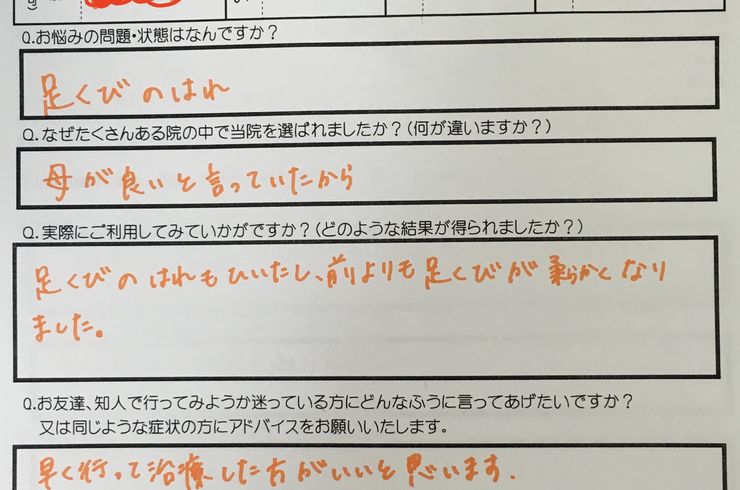 Q.お悩みの問題・状態はなんですか？
足くびのはれ
Q.なぜたくさんある院の中で当院を選ばれましたか？（何が違いますか？）
母が良いと言っていたから
Q.実際にご利用してみていかがですか？（どのような結果が得られましたか？）
足くびのはれもひいたし、前よりも足くびが柔らかくなり
ました。
Q.お友達、知人で行ってみようか迷っている方にどんなふうに言ってあげたいですか？
又は同じような症状の方にアドバイスをお願いいたします。
早く行って治療した方がいいと思います.